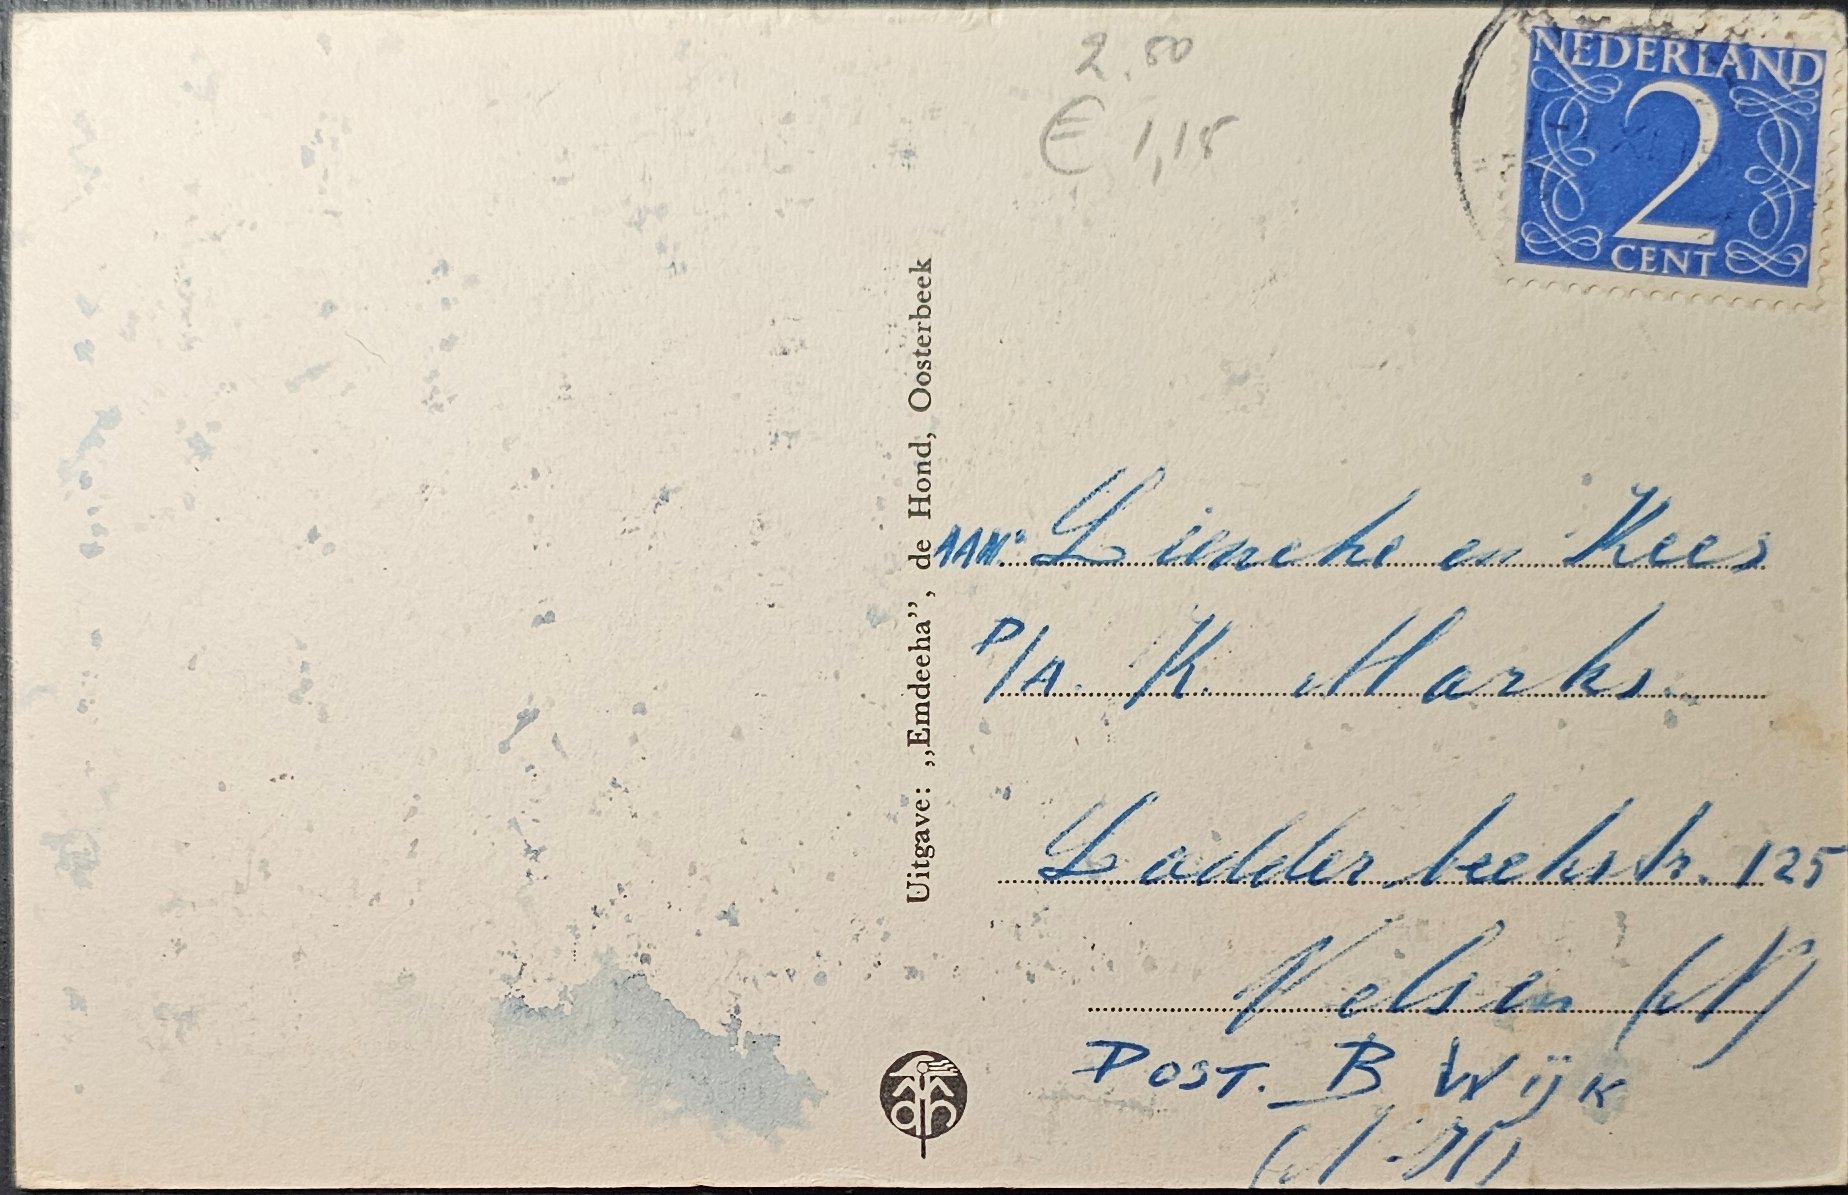 2.50
€ 1,15
NEDERLAND
2
CENT
Uitgave: „Emdeeha”, de Hond, Oosterbeek
AAN: Lieneke en Kees
P/A. K. Marks.
Ladderbeekstr. 125
Velsen (N)
POST. B WIJK